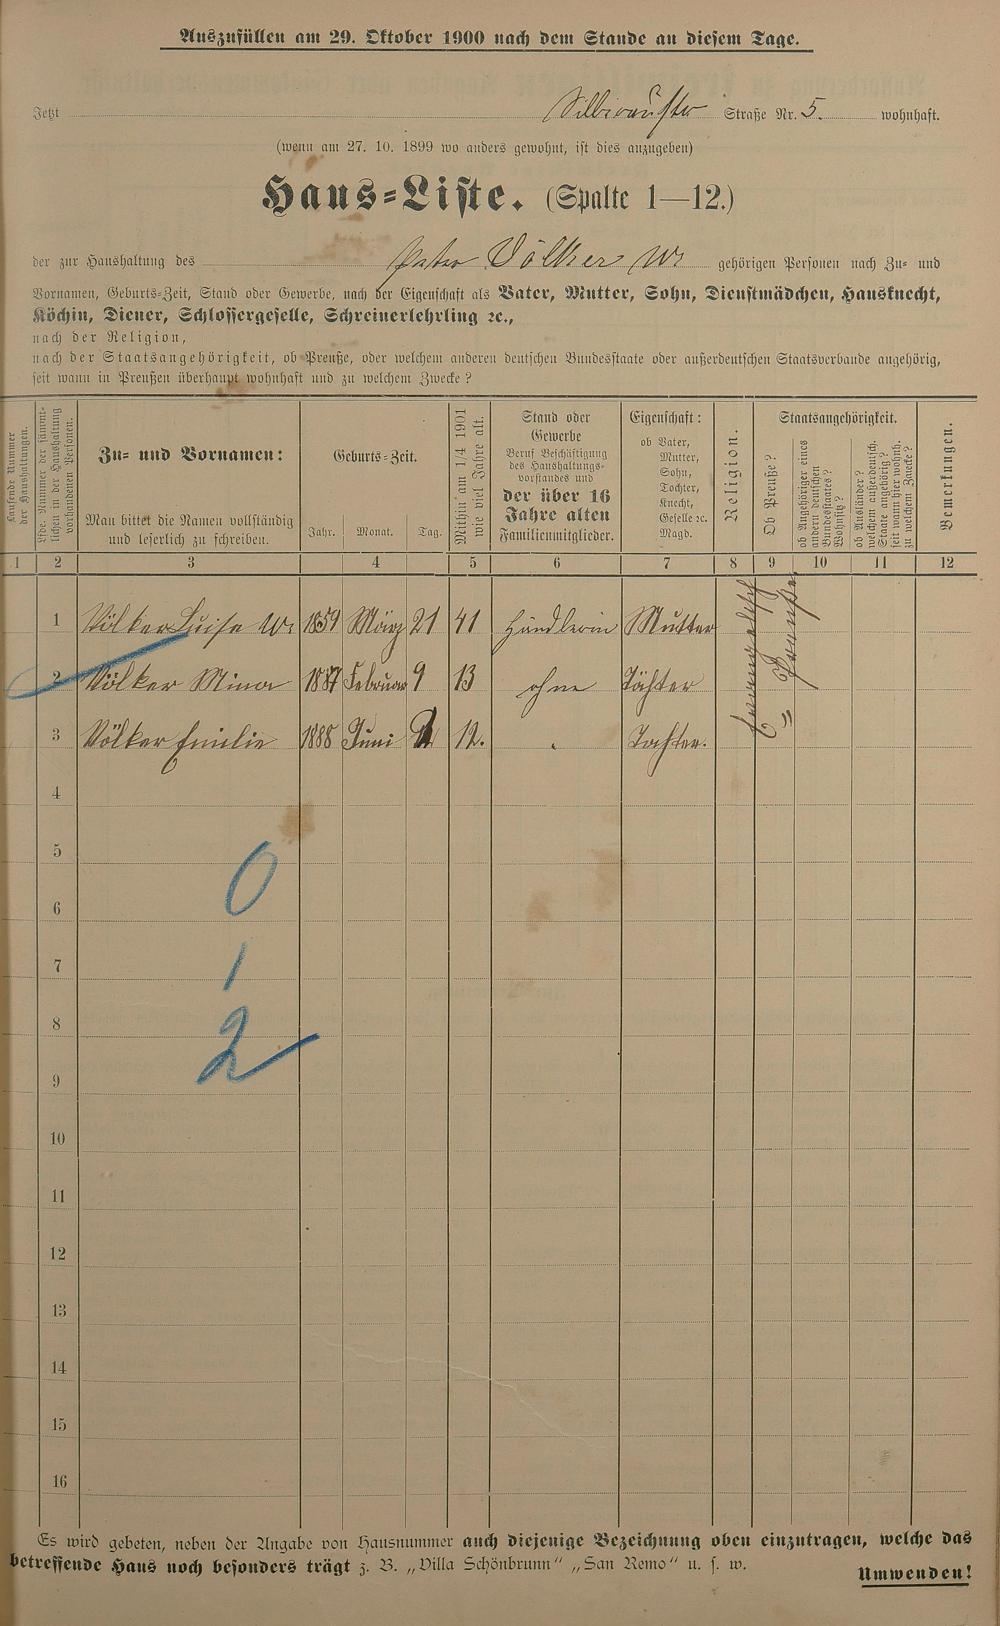 Auszufüllen am 29. Oktober 1900 nach dem Stande an diesem Tage.
Jetzt Straße Nr. 5. wohnhaft.
(wenn am 27. 10. 1899 wo anders gewohnt, ist dies anzugeben)
Haus=Liste. (Spalte 1—12.)
der zur Haushaltung des Peter Völker Ww gehörigen Personen nach Zu= und
Vornamen, Geburts=Zeit, Stand oder Gewerbe, nach der Eigenschaft als Vater, Mutter, Sohn, Dienstmädchen, Hausknecht,
Köchin, Diener, Schlossergeselle, Schreinerlehrling ꝛc.,
nach der Religion,
nach der Staatsangehörigkeit, ob Preuße, oder welchem anderen deutschen Bundesstaate oder außerdeutschen Staatsverbande angehörig,
seit wann in Preußen überhaupt wohnhaft und zu welchem Zwecke?
Laufende Nummer
der Haushaltungen.
Lfde. Nummer der sämmt-
lichen in der Haushaltung
vorhandenen Personen.
Zu= und Vornamen:
Man bittet die Namen vollständig
und leserlich zu schreiben.
Geburts=Zeit.
Jahr. Monat. Tag.
Mithin am 1/4 1901
wie viel Jahre alt.
Stand oder
Gewerbe
Beruf Beschäftigung
des Haushaltungs-
vorstandes und
der über 16
Jahre alten
Familienmitglieder.
Eigenschaft:
ob Vater,
Mutter,
Sohn,
Tochter,
Knecht,
Geselle ꝛc.
Magd.
Religion.
Staatsangehörigkeit.
Ob Preuße?
ob Angehöriger eines
andern deutschen
Bundesstaates?
Wohnsitz?
ob Ausländer?
welchem außerdeutsch.
Staate angehörig?
seit wann hier wohnh.
zu welchem Zwecke?
Bemerkungen.
1 2 3 4 5 6 7 8 9 10 11 12
1 Völker Luise Ww. 1859 März 21 41 Händlerin Mutter Evangelisch Preuße
2 Völker Mina 1887 Februar 9 13 ohne Tochter "
3 Völker Emilie 1888 Juni 12. " Tochter.
4
5
6
7
8
9
10
11
12
13
14
15
16
0
1
2
Es wird gebeten, neben der Angabe von Hausnummer auch diejenige Bezeichnung oben einzutragen, welche das
betreffende Haus noch besonders trägt z. B. „Villa Schönbrunn" „San Remo" u. s. w.
Umwenden!